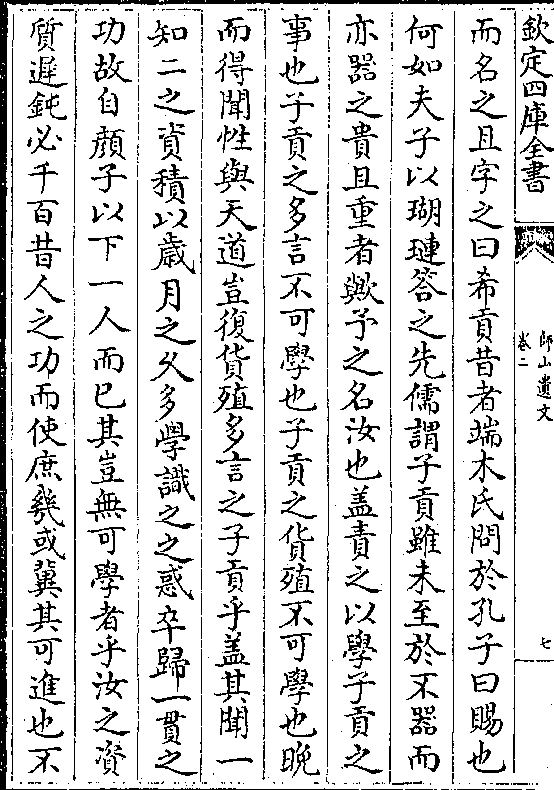 欽定四庫全書
師山遺文
卷二
七
而名之且字之曰希貢昔者端木氏問於孔子曰賜也
何如夫子以瑚璉答之先儒謂子貢雖未至於不器而
亦器之貴且重者歟予之名汝也盖責之以學子貢之
事也子貢之多言不可學也子貢之貨殖不可學也晚
而得聞性與天道豈復貨殖多言之子貢乎盖其聞一
知二之資積以歲月之久多學識之之惑卒歸一貫之
功故自顔子以下一人而已其豈無可學者乎汝之資
質遲鈍必千百昔人之功而使庶幾或冀其可進也不